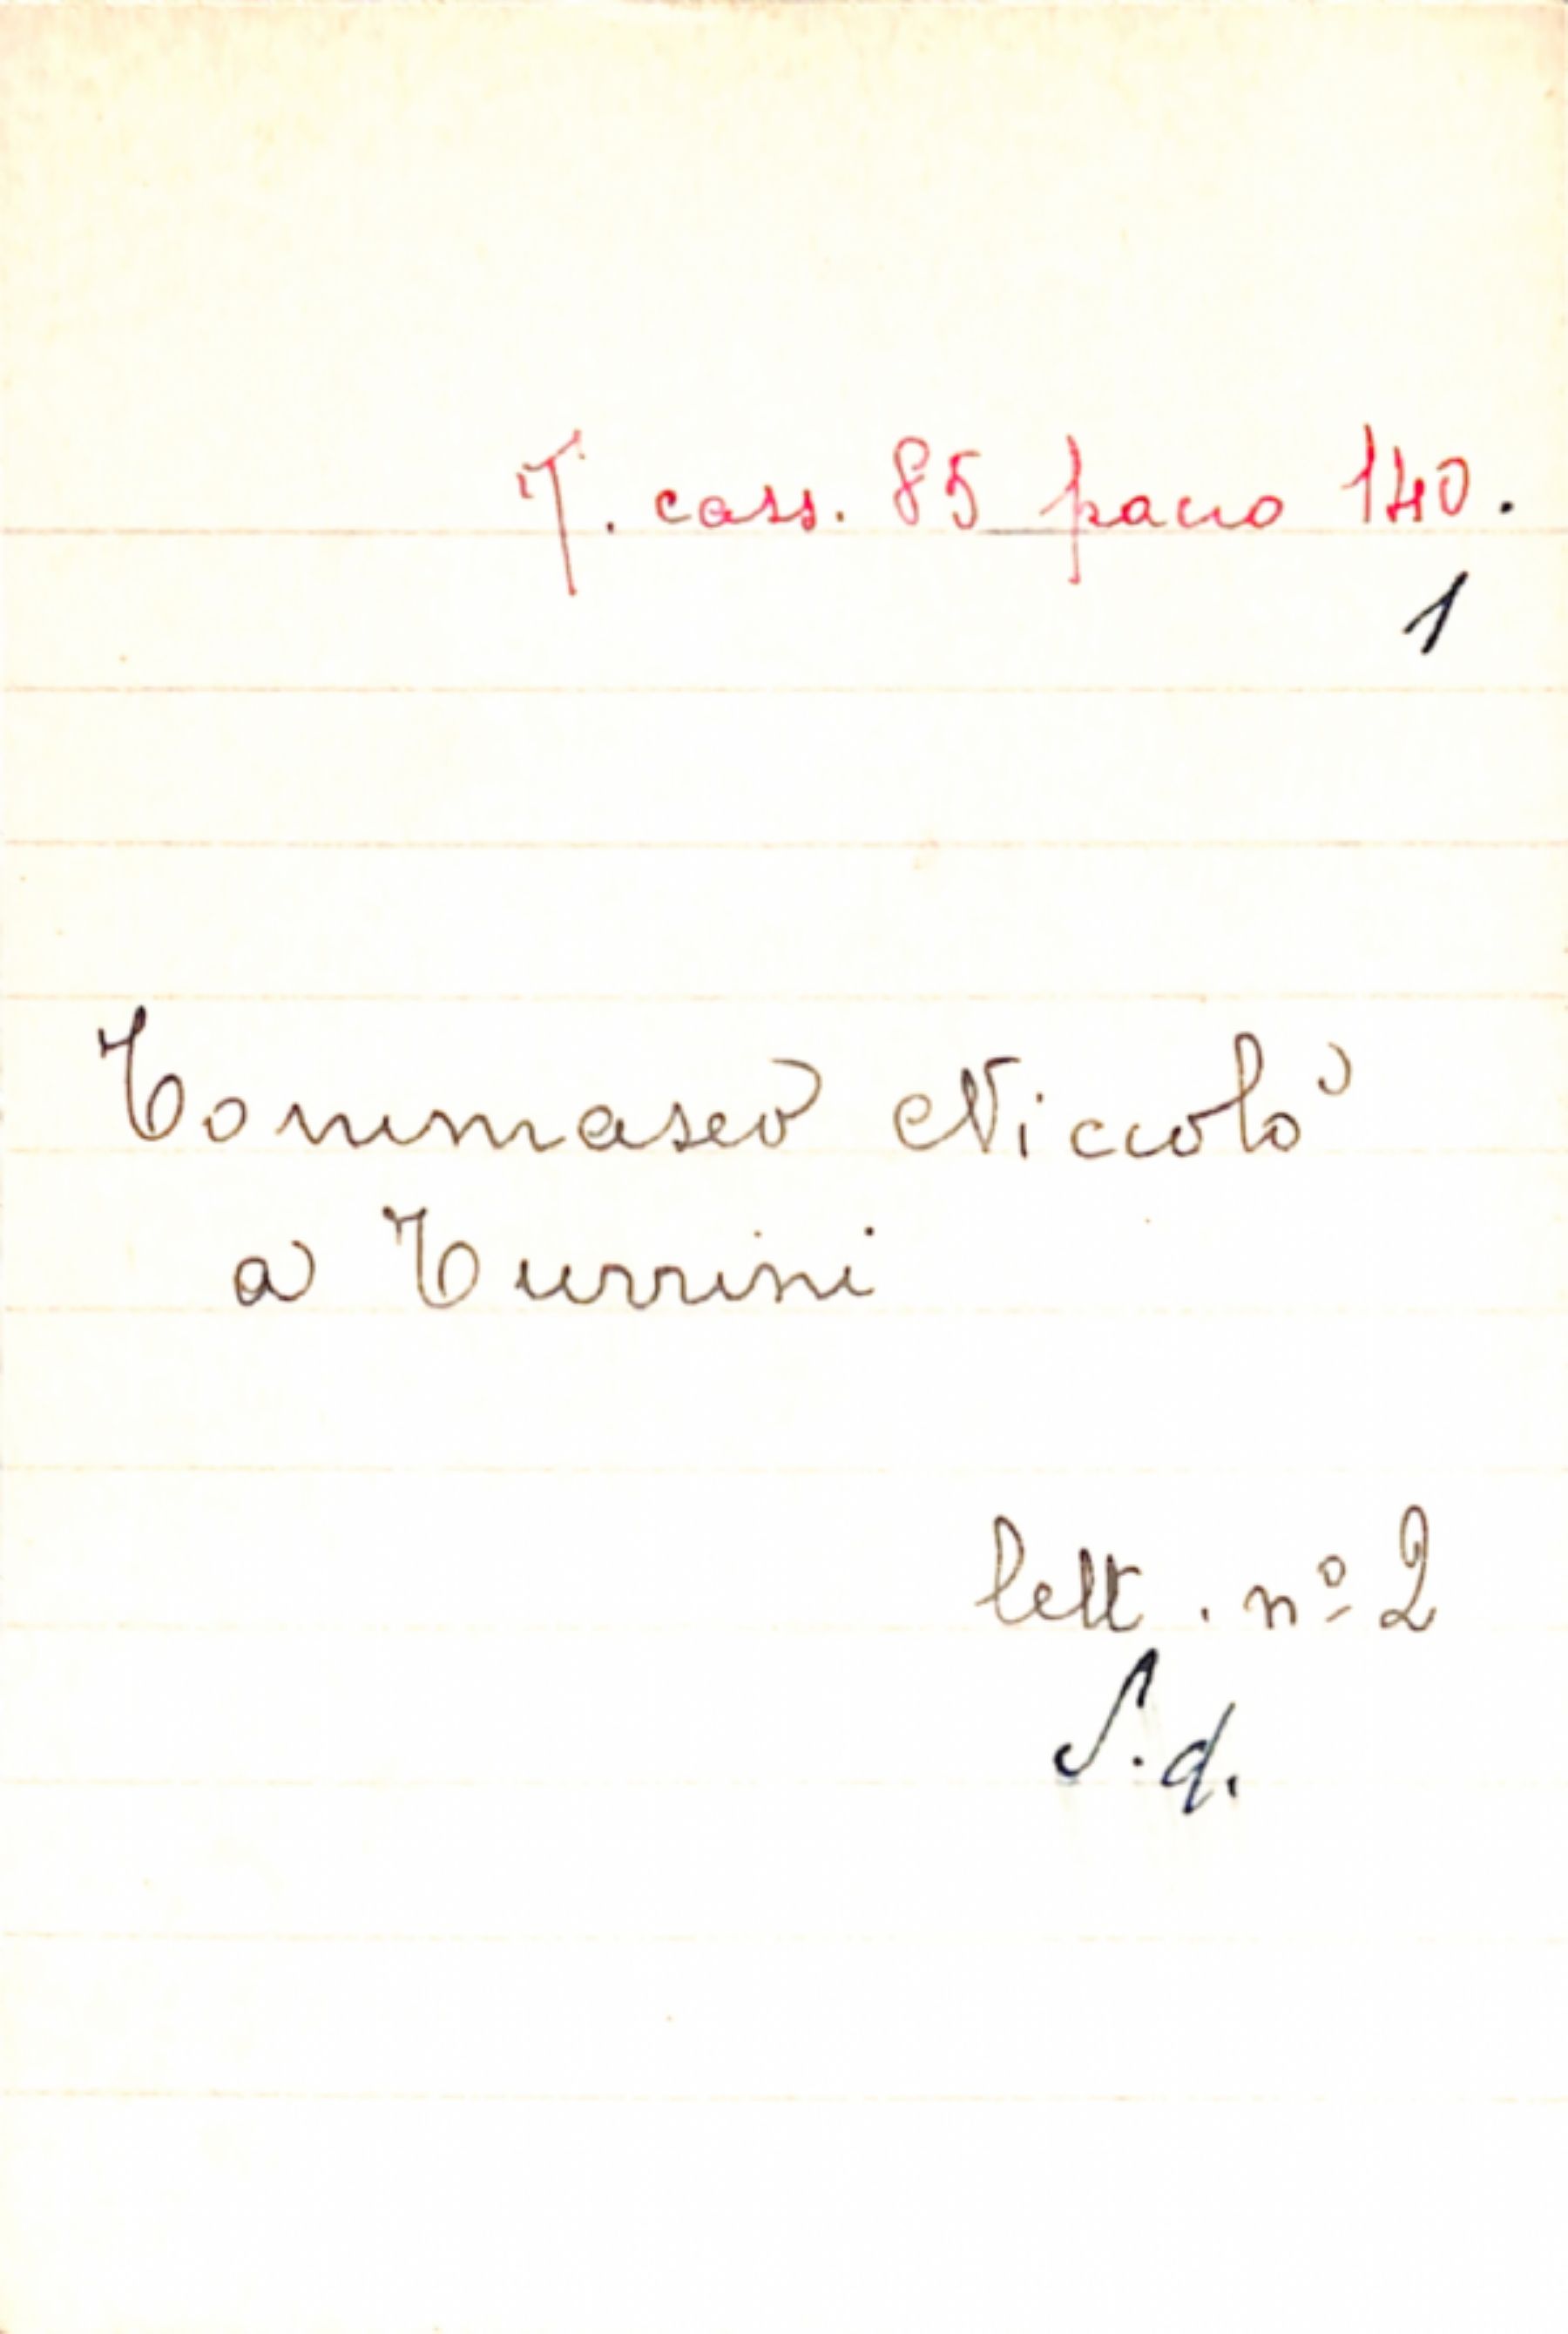 T. cass. 85 pacco 140.
1
Tommaseo Niccolò
a Turrini
lett. nº 2
S.d.